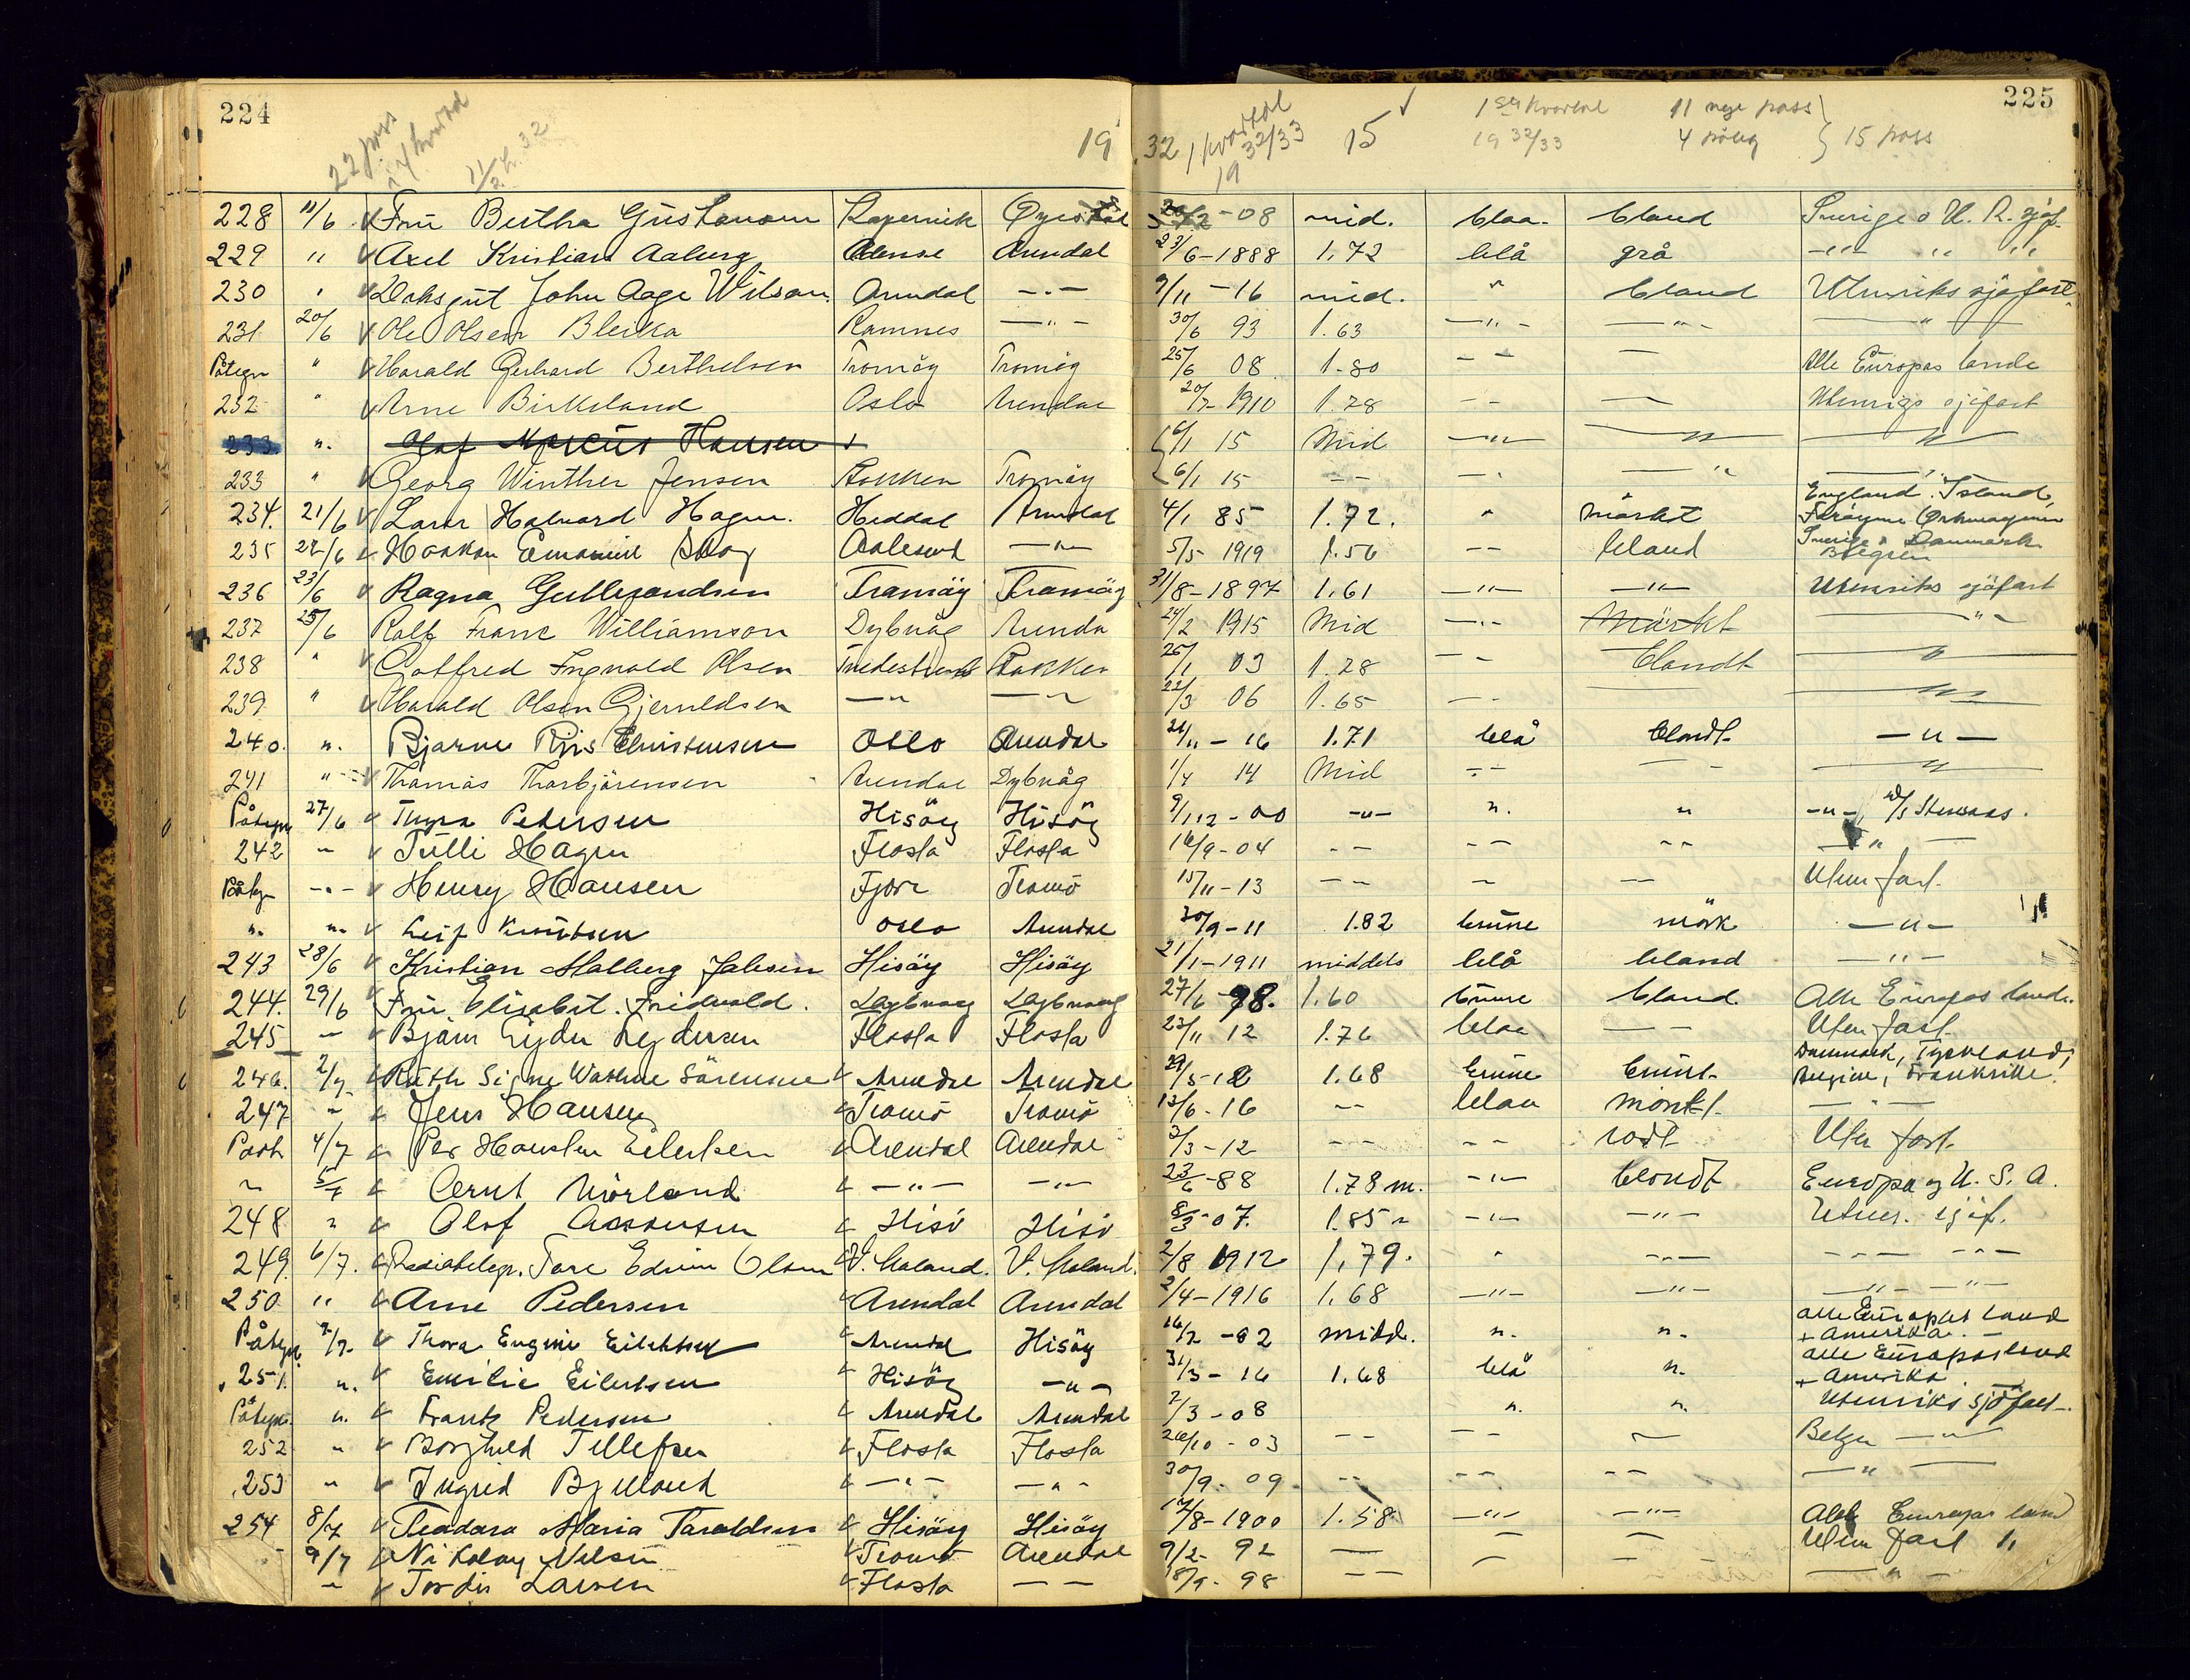 224
22 pass
19
32
1 kvartal
19 32/33
15
1ste kvartal
19 32/33
11 nye pass
4 påteg
15 pass
225
228 11/6 Fru Bertha Gustavson Kopervik Øyestad -08 mid. blaa. blond Sverige o U. R. sjøf.
229 " Axel Kristian Aaberg Odense Arendal 23/6-1888 1.72 blå grå -"- " "
230 " Dæksgut John Aage Wilson Arendal -"- 9/11-16 mid. " blond Utenriks sjøfart
231 20/6 Ole Olsen Bleika Ramnes -"- 30/6 93 1.63 -"- -"- "
Påtegn " Harald Gerhard Berthelsen Tromøy Tromøy 25/6 08 1.80 - - - Alle Europas lande
232 " Arne Birkeland Oslo Arendal 20/7-1910 1.78 - - - Utenrigs sjøfart
233 ". Olaf Marcus Hansen 6/1 15 Mid -"- -"- -"-
233 " Georg Winther Jensen Stokken Tromøy 6/1 15 - - -"- -"- -"-
234. 21/6 Lars Halvard Hagen. Heddal Arendal 4/1 85 1.72. " mörkt England. Island, Færøyene Orknøyene
235 22/6 Haakon Emanuel Skog Aalesund -"- 5/5-1919 1.56 - - blond Sverige, Danmark Belgien
236 23/6 Ragna Gullepandsen Tromöy Tromöy 31/8-1897 1.61 -"- -"- Utenriks sjöfart
237 25/6 Rolf Franc Williamson Dybvåg Arenda 24/2 1915 Mid -"- Mörkt -"-
238 " Gotfred Ingvald Olsen Tvedestrand Stokken 25/1 03 1.28 - - blondt "
239 " Harald Olsen Gjeruldsen -"- -"- 22/3 06 1.65 - - - -"-
240. ". Bjarne Riis Christensen Oslo Arendal 24/11-16 1.71 blå blondt -"-
241 " Thomas Thorbjörensen Arendal Dybvåg 1/4 14 Mid - - - - -"-
Påtegn 27/6 Thyra Pedersen Hisöy Hisöy 9/12-00 -"- ". " -"-
242 " Tulli Hagen Flosta Flosta 16/9-04 - - - - - - -"-
Påtegn -"- Henry Hansen Fjære Tromö 15/11-13 - - - - Uten fart.
". ". Leif Knutsen Oslo Arendal 30/9-11 1.82 brune mörk -"-
243 28/6 Kristian Malberg Jabsen Hisöy Hisöy 21/1-1911 middels blå blond -"-
244. 29/6 Fru Elisabet Fridvold. Dybvaag Dybvaag 27/6 98. 1.60 brune blond Alle Europas lande.
245 " Bjarn Eyder Reydersen Flosta Flosta 23/11 12 1.76 blaa - - Uten fart.
246. 2/7 Ruth Signe Wathne Sörensen Arendal Arendal 29/5-12 1.68 brune brunt Danmark, Tyskland, Belgien, Frankrike.
247 " Jens Hansen Tromö Tromö 13/6-16 - - blaa mörkt. -"-
4/7 Per Houshen Eilertsen Arendal Arendal 3/3-12 - - - - rödt Uten fart.
" 5/7 Bernt Mörland -"- -"- 23/6-88 1.78 m. -"- blondt Europa og U. S. A.
248 " Olof Aasensen Hisö Hisö 8/3-07. 1.85 " -"- -"- Utenr. sjöf.
249. 6/7. Radiotelegr. Tore Edvin Olsen V. Moland. V. Moland. 2/8 1912 1.79. " -"- -"- -"-
250 " Arne Pedersen Arendal Arendal 2/4-1916 1.68 -"- -"- -"- -"-
Påtegn 7/7. Thora Eugenie Eilertsen Arendal Hisöy 14/2-02 midd. ". ". alle Europas land + Amerika. -
251. ". Emilie Eilertsen Hisöy -"- 31/3-16 1.68 blå ". alle Europas land + Amerika.
Påtegn. ". Frants Pedersen Arendal Arendal 2/3-08 ". ". Utenriks sjöfart.
252 " Borghild Tellefsen Flosta Flosta 26/10-03 - - - - - Belgn -"-
253 " Ingrid Bjelland -"- -"- 30/9-09 - - - - - - -"-
254 8/7 Teodora Maria Taraldsen Hisöy Hisöy 17/8-1900 1.58 -"- -"- Alle Europas land
9/7 Nikolay Nilsen Tromö Arendal 9/2-92 - - - Uten fart
" Tordis Larsen Flosta - - 18/9-98 - - - - -"-